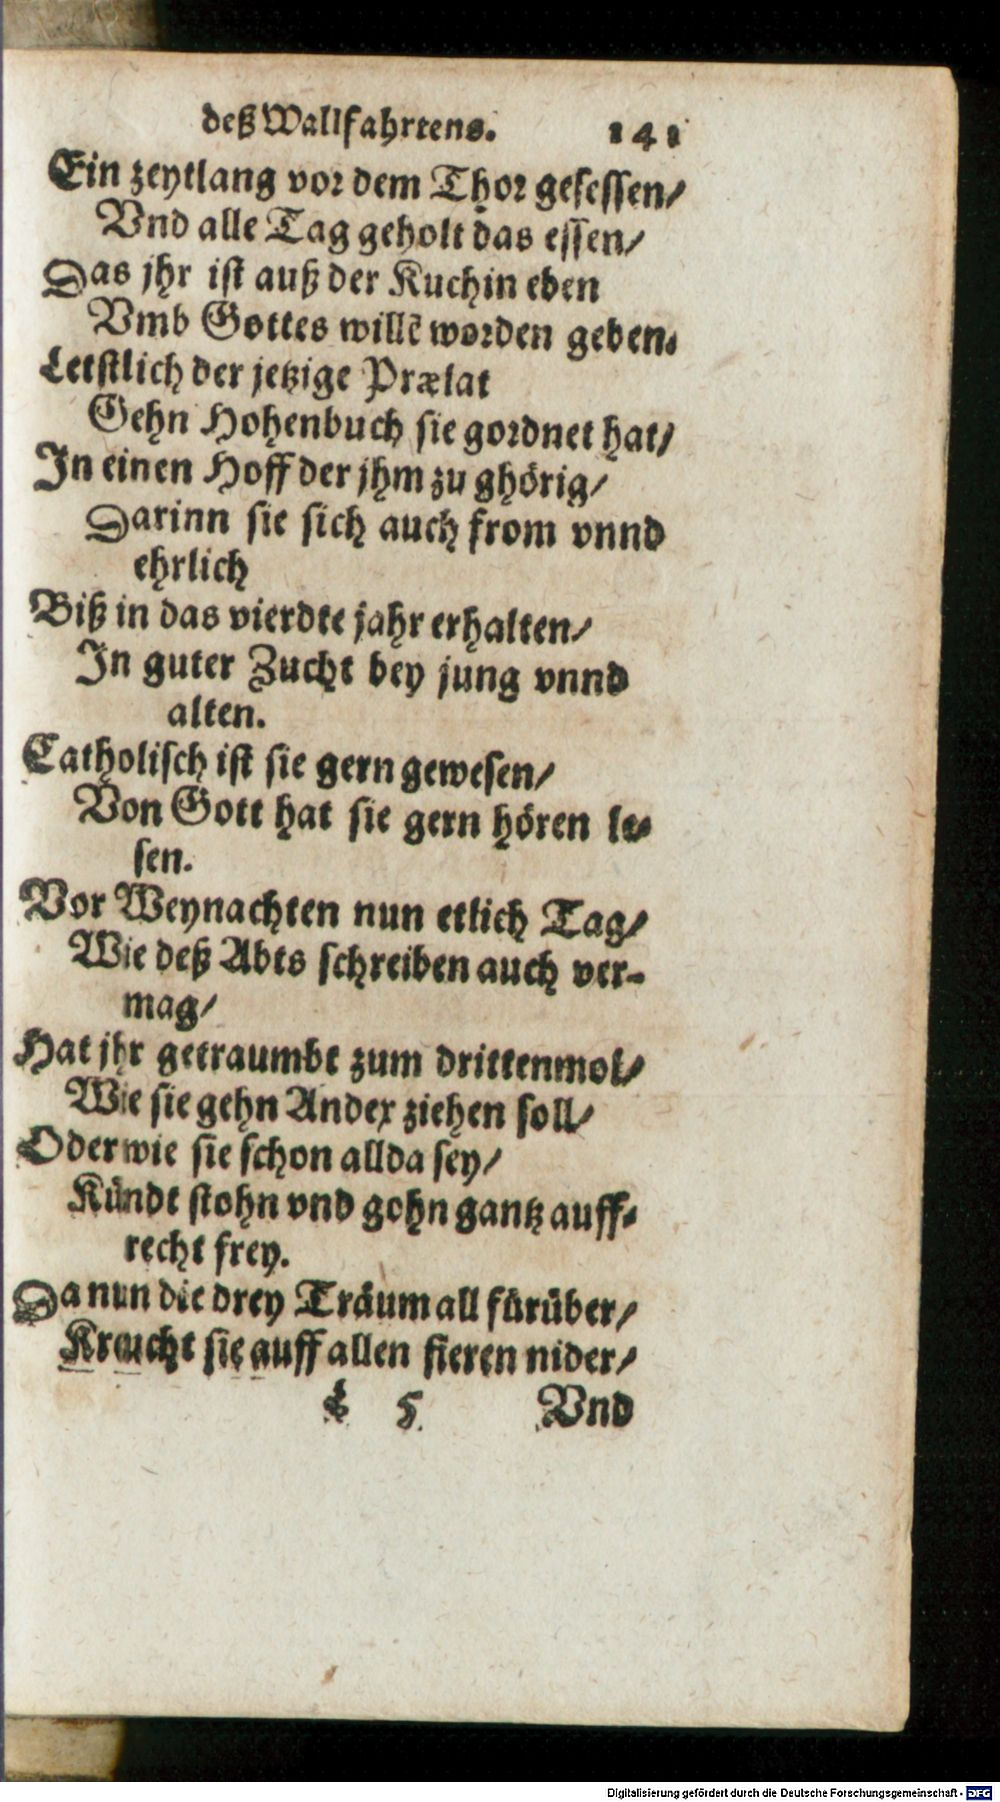 deß Wallfahrtens. 141
Ein zeytlang vor dem Thor gesessen/
Vnd alle Tag geholt das essen/
Das jhr ist auß der Kuchin eben
Vmb Gottes willẽ worden geben.
Letstlich der jetzige Prælat
Gehn Hohenbuch sie gordnet hat/
In einen Hoff der jhm zu ghörig/
Darinn sie sich auch from vnnd
ehrlich
Biß in das vierdte jahr erhalten/
In guter Zucht bey jung vnnd
alten.
Catholisch ist sie gern gewesen/
Von Gott hat sie gern hören le-
sen.
Vor Weynachten nun etlich Tag/
Wie deß Abts schreiben auch ver-
mag/
Hat jhr getraumbt zum drittenmol/
Wie sie gehn Andex ziehen soll/
Oder wie sie schon allda sey/
Kündt stohn vnd gohn gantz auff-
recht frey.
Da nun die drey Träum all fürüber/
Kreucht sie auff allen fieren nider/
5 Vnd
Digitalisierung gefördert durch die Deutsche Forschungsgemeinschaft - DFG